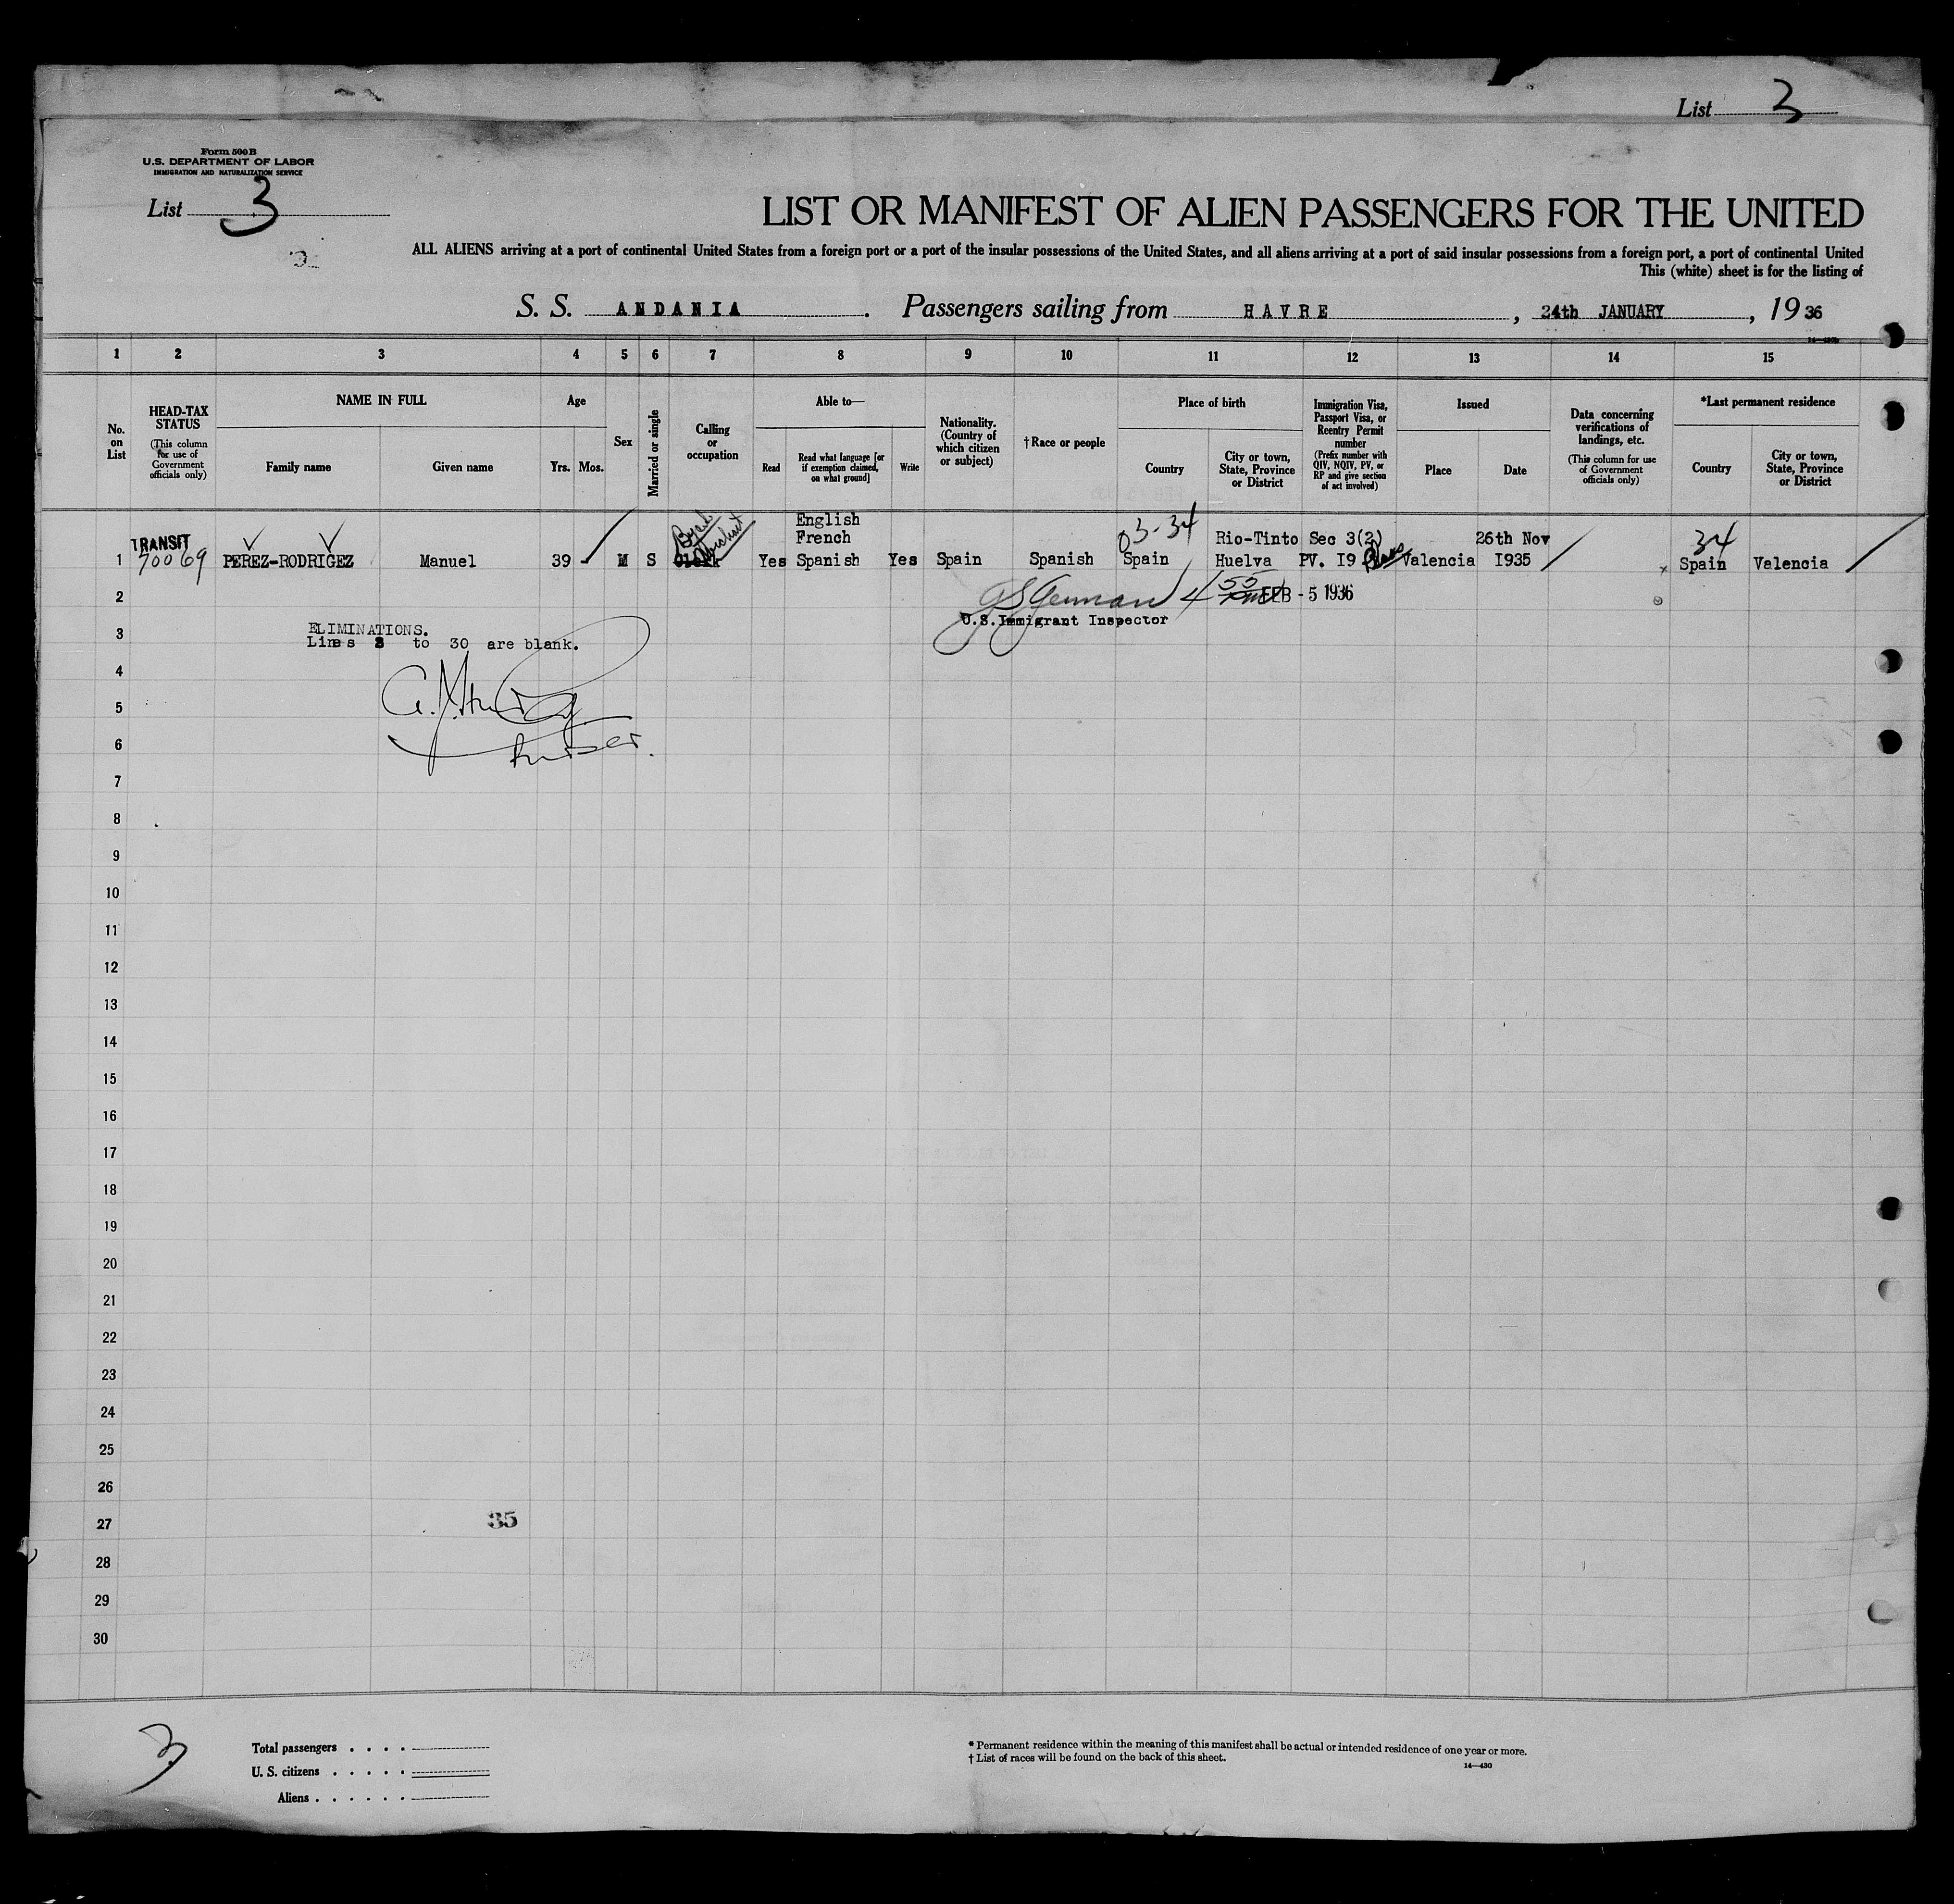 List 3
Form 500B
U.S. DEPARTMENT OF LABOR
IMMIGRATION AND NATURALIZATION SERVICE
List 3
LIST OR MANIFEST OF ALIEN PASSENGERS FOR THE UNITED
ALL ALIENS arriving at a port of continental United States from a foreign port or a port of the insular possessions of the United States, and all aliens arriving at a port of said insular possessions from a foreign port, a port of continental United
This (white) sheet is for the listing of
S. S. ANDANIA. Passengers sailing from HAVRE, 24th JANUARY, 1936
1 2 3 4 5 6 7 8 9 10 11 12 13 14 15
No. on List
HEAD-TAX STATUS
(This column for use of Government officials only)
NAME IN FULL
Family name
Given name
Age
Yrs. Mos.
Sex
Married or single
Calling or occupation
Able to—
Read
Read what language [or if exemption claimed, on what ground]
Write
Nationality. (Country of which citizen or subject)
†Race or people
Place of birth
Country
City or town, State, Province or District
Immigration Visa, Passport Visa, or Reentry Permit number
(Prefix number with QIV, NQIV, PV, or RP and give section of act involved)
Issued
Place
Date
Data concerning verifications of landings, etc.
(This column for use of Government officials only)
*Last permanent residence
Country
City or town, State, Province or District
English
French 03-34 Rio-Tinto Sec 3(2) 26th Nov 34
TRANSIT
1 70069 PEREZ-RODRIGEZ Manuel 39 - M S Clerk Yes Spanish Yes Spain Spanish Spain Huelva PV. I9 Valencia I935 Spain Valencia
2 FEB - 5 1936
U.S. Immigrant Inspector
3 ELIMINATIONS.
Lines 2 to 30 are blank.
4
5
6 Purser.
7
8
9
10
11
12
13
14
15
16
17
18
19
20
21
22
23
24
25
26
27 35
28
29
30
3
Total passengers . . . .
U. S. citizens . . . . .
Aliens . . . . . .
* Permanent residence within the meaning of this manifest shall be actual or intended residence of one year or more.
† List of races will be found on the back of this sheet.
14—430